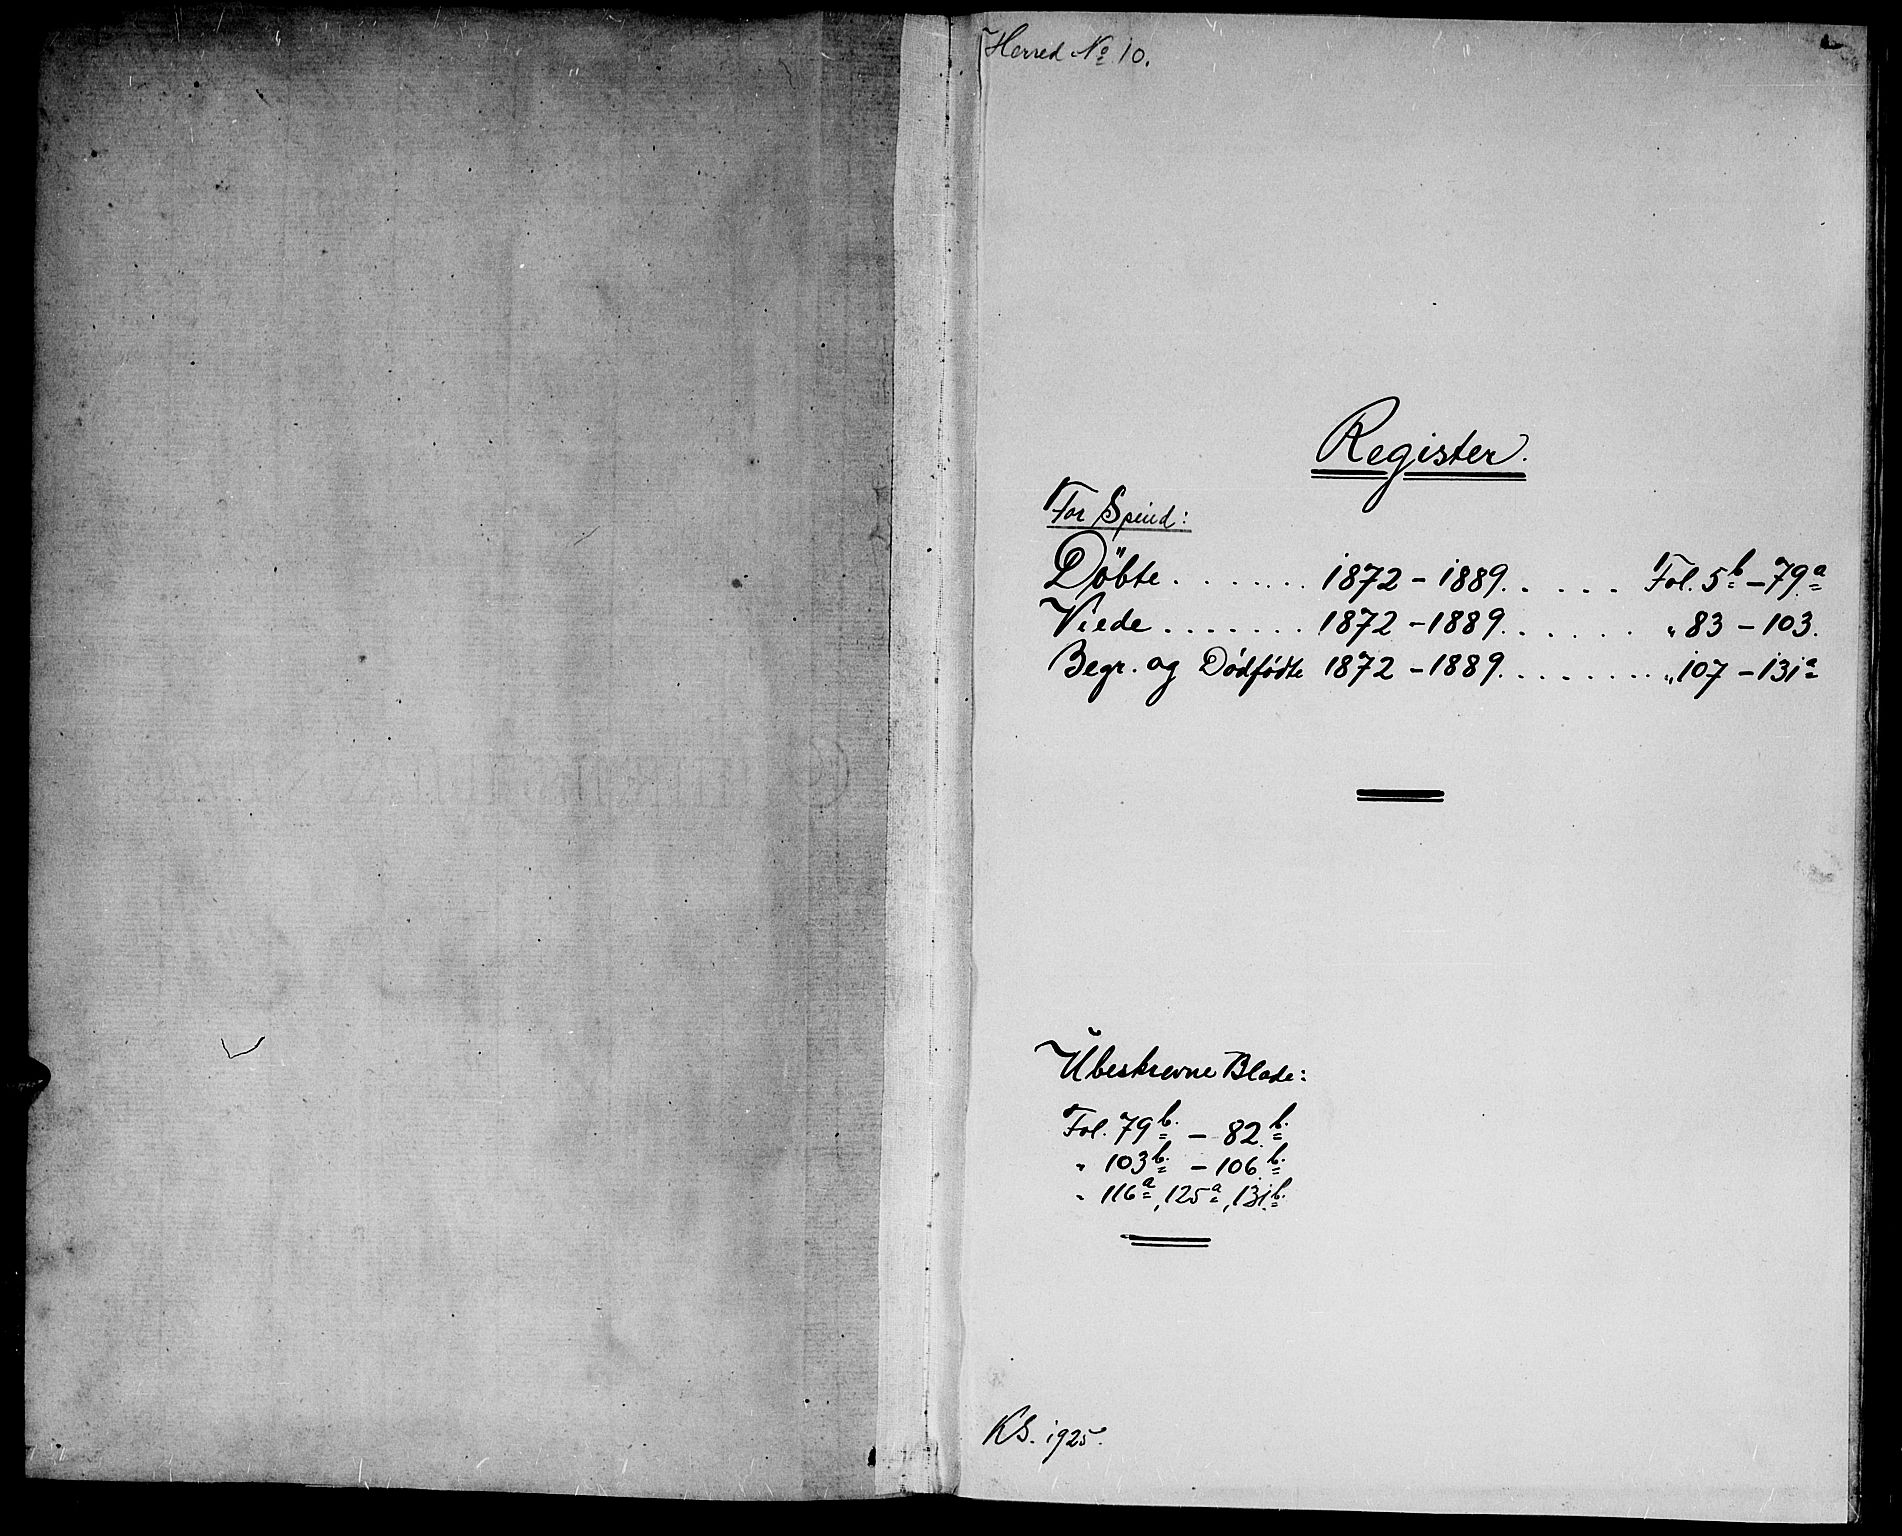 Herred No 10.
Register.
For Spind:
Döbte . . . . . . . 1872 - 1889. . . . . . Fol. 5b - 79a
Viede . . . . . . . 1872 - 1889. . . . . . . " 83 - 103.
Begr. og Dödfödte 1872 - 1889. . . . . . . . . " 107 - 131a
Ubeskrevne Blade:
Fol. 79b. - 82b.
" 103b. - 106b.
" 116a, 125a, 131b.
KS. 1925.